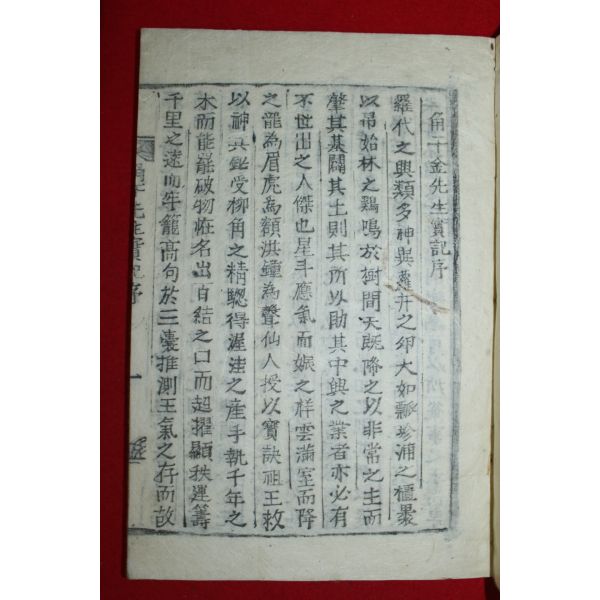 角干金先生實記序
羅代之興類多神異蘿井之卵大如瓢珍浦之櫃纍
以帛始林之鷄鳴於樹間天旣降之以非常之主而
肇其基闢其土則其所以助其中興之業者亦必有
不世出之人傑也星斗應氣而娠之祥雲滿室而降
之龍為眉虎為額洪鐘為聲仙人授以寶訣祖王敕
以神兵鉛受柳角之精驄得渥洼之産手執千年之
木而能罷破物在名出百結之口而起擢顯秩運籌
千里之遠而牢籠高句於三囊推測王氣之存而故
先生實記序
一